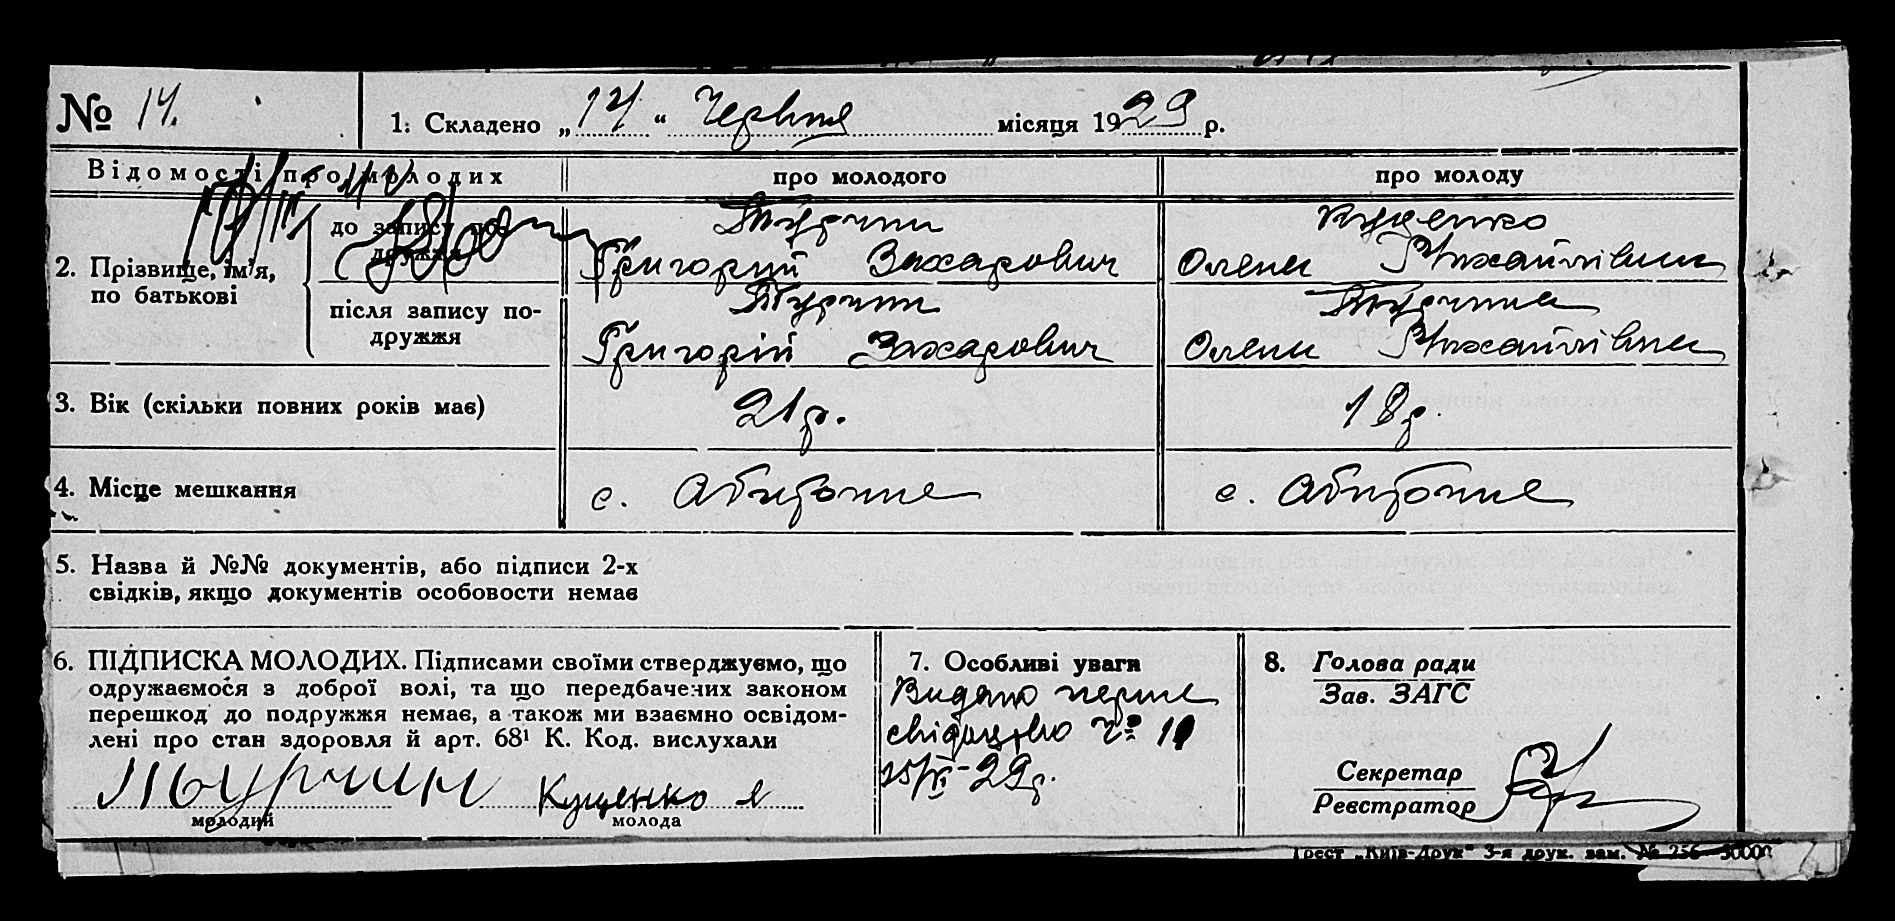 № 14.
1. Складено „ 14 “ Червня місяця 1929 р.
Відомості про молодих
про молодого
про молоду
2. Прізвище, ім'я, по батькові
до запису подружжя
Турчин
Григорий Захарович
Куценко
Олена Михайлівна
після запису по-
дружжя
Турчин
Григорій Захарович
Турчина
Олена Михайлівна
3. Вік (скільки повних років має)
21р.
18р.
4. Місце мешкання
с.
с.
5. Назва й №№ документів, або підписи 2-х
свідків, якщо документів особовости немає
6. ПІДПИСКА МОЛОДИХ. Підписами своїми стверджуємо, що
одружаємося з доброї волі, та що передбачених законом
перешкод до подружжя немає, а також ми взаємно освідом-
лені про стан здоровля й арт. 68¹ К. Код. вислухали
Турчин
молодий
Куценко
молода
7. Особливі уваги
Видано перше
свідоцтво №
29р.
8. Голова ради
Зав. ЗАГС
Секретар
Реєстратор
Трест „Київ-Друк“ 3-я друк. зам. № 256—50000